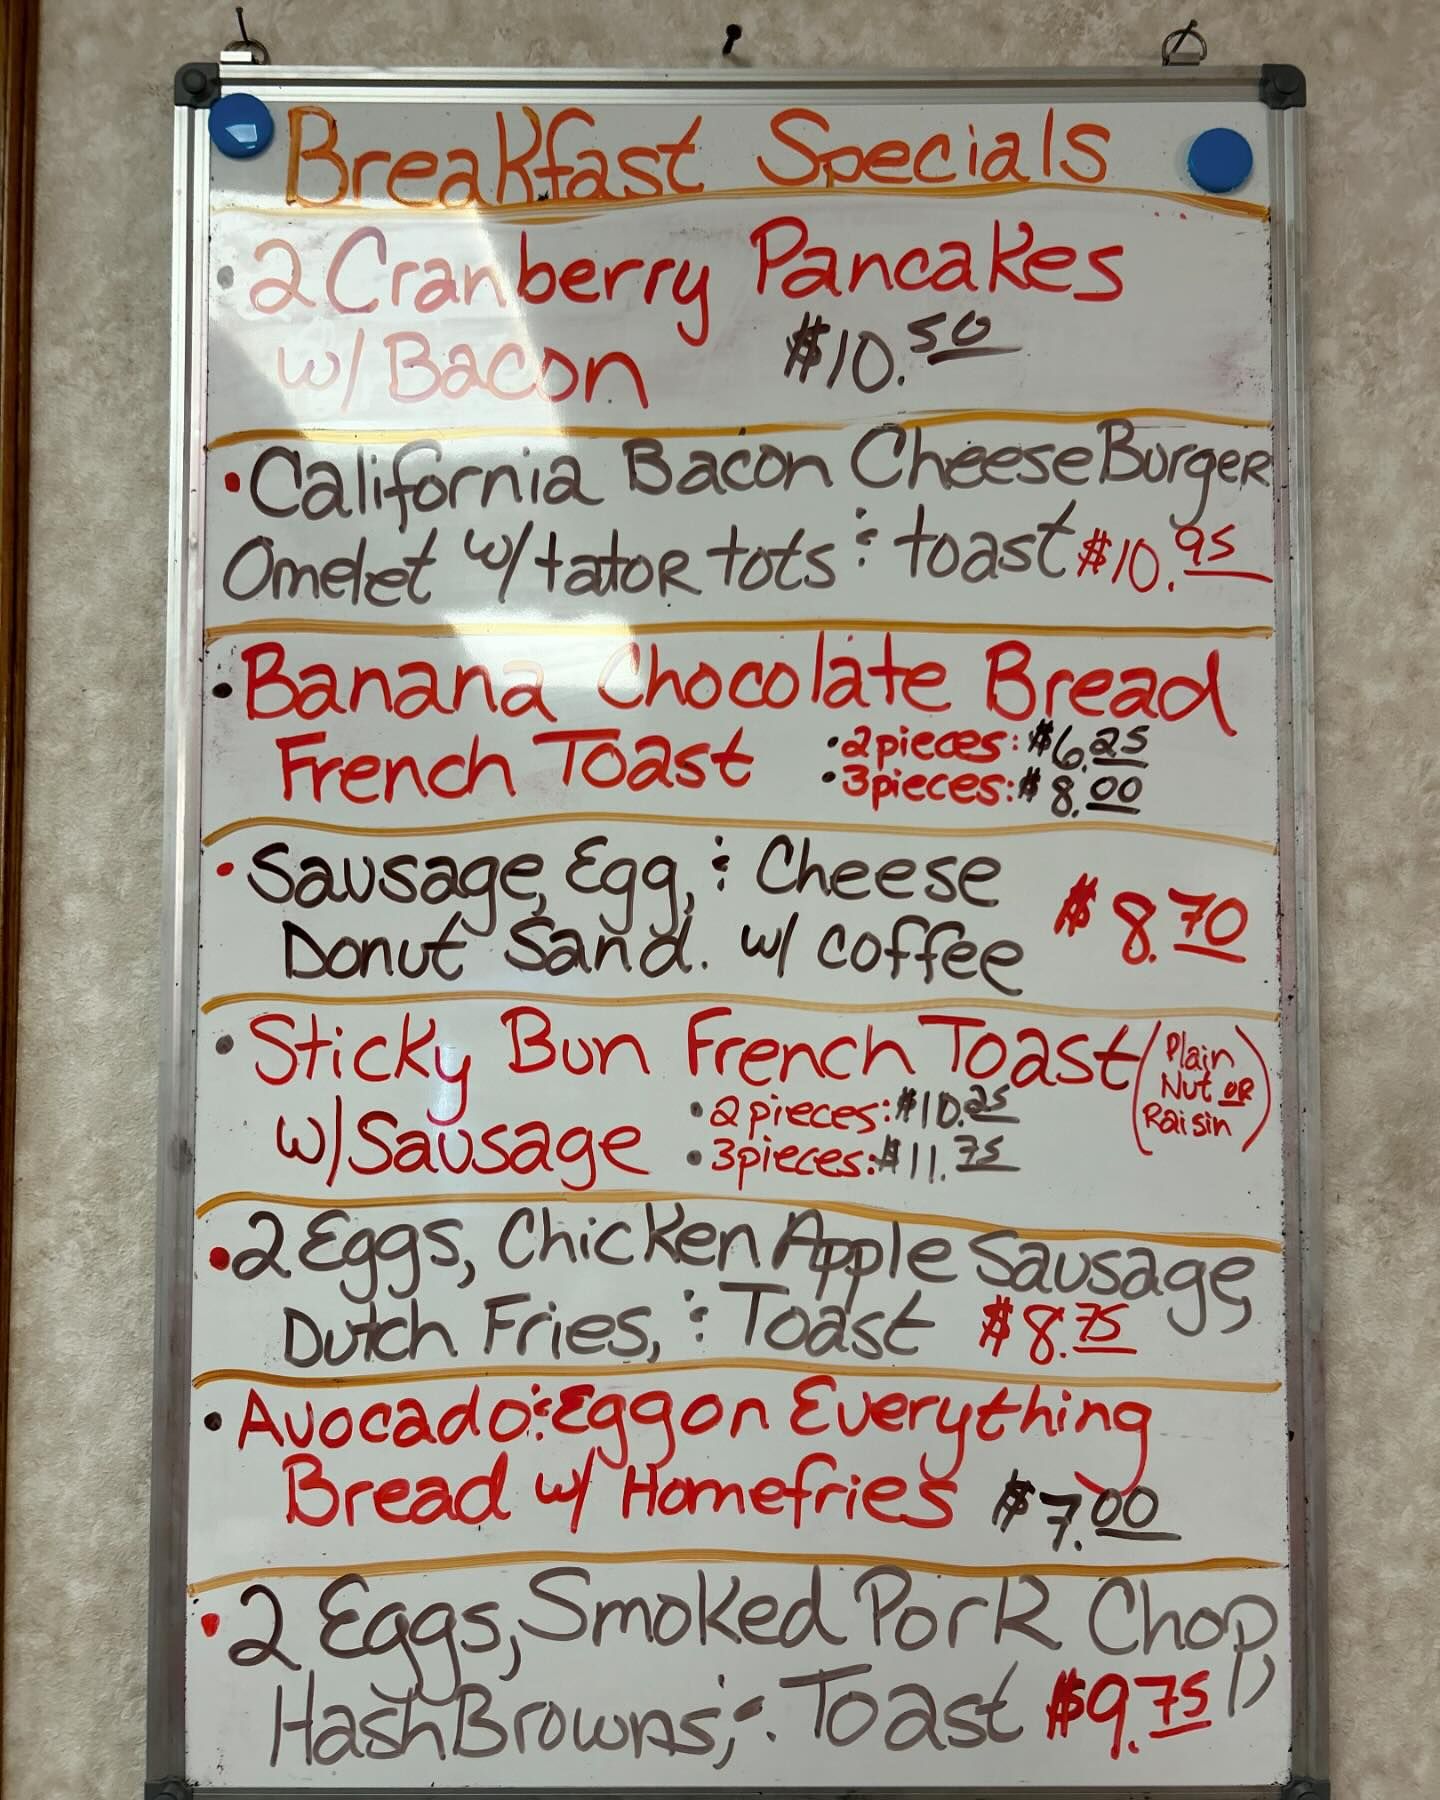 Breakfast Specials
• 2 Cranberry Pancakes
w/ Bacon $10.50
• California Bacon CheeseBurger
Omelet w/ tator tots & toast $10.95
• Banana Chocolate Bread
French Toast • 2 pieces: $6.25
• 3 pieces: $8.00
• Sausage, Egg, & Cheese
Donut Sand. w/ coffee $8.70
• Sticky Bun French Toast (Plain
Nut or
Raisin)
w/ Sausage • 2 pieces: $10.25
• 3 pieces: $11.75
• 2 Eggs, Chicken Apple Sausage,
Dutch Fries, & Toast $8.75
• Avocado & Egg on Everything
Bread w/ Homefries $7.00
• 2 Eggs, Smoked Pork Chop,
HashBrowns, & Toast $9.75